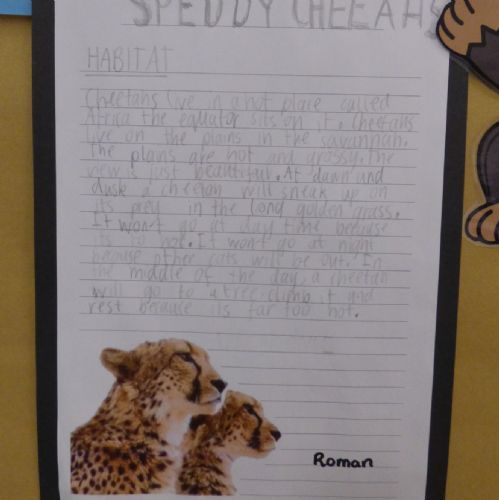 SPEDDY CHEEAHS
HABITAT
Cheetahs live in a hot place called
Africa the equator sits on it. Cheetahs
live on the plains in the savannah.
The plains are hot and grassy. The
view is just beautiful. At dawn and
dusk a cheetah will sneak up on
its prey in the long golden grass.
It won't go at day time because
its to hot. It won't go at night
because other cats will be out. In
the middle of the day, a cheetah
will go to a tree climb it and
rest because its far too hot.
Roman